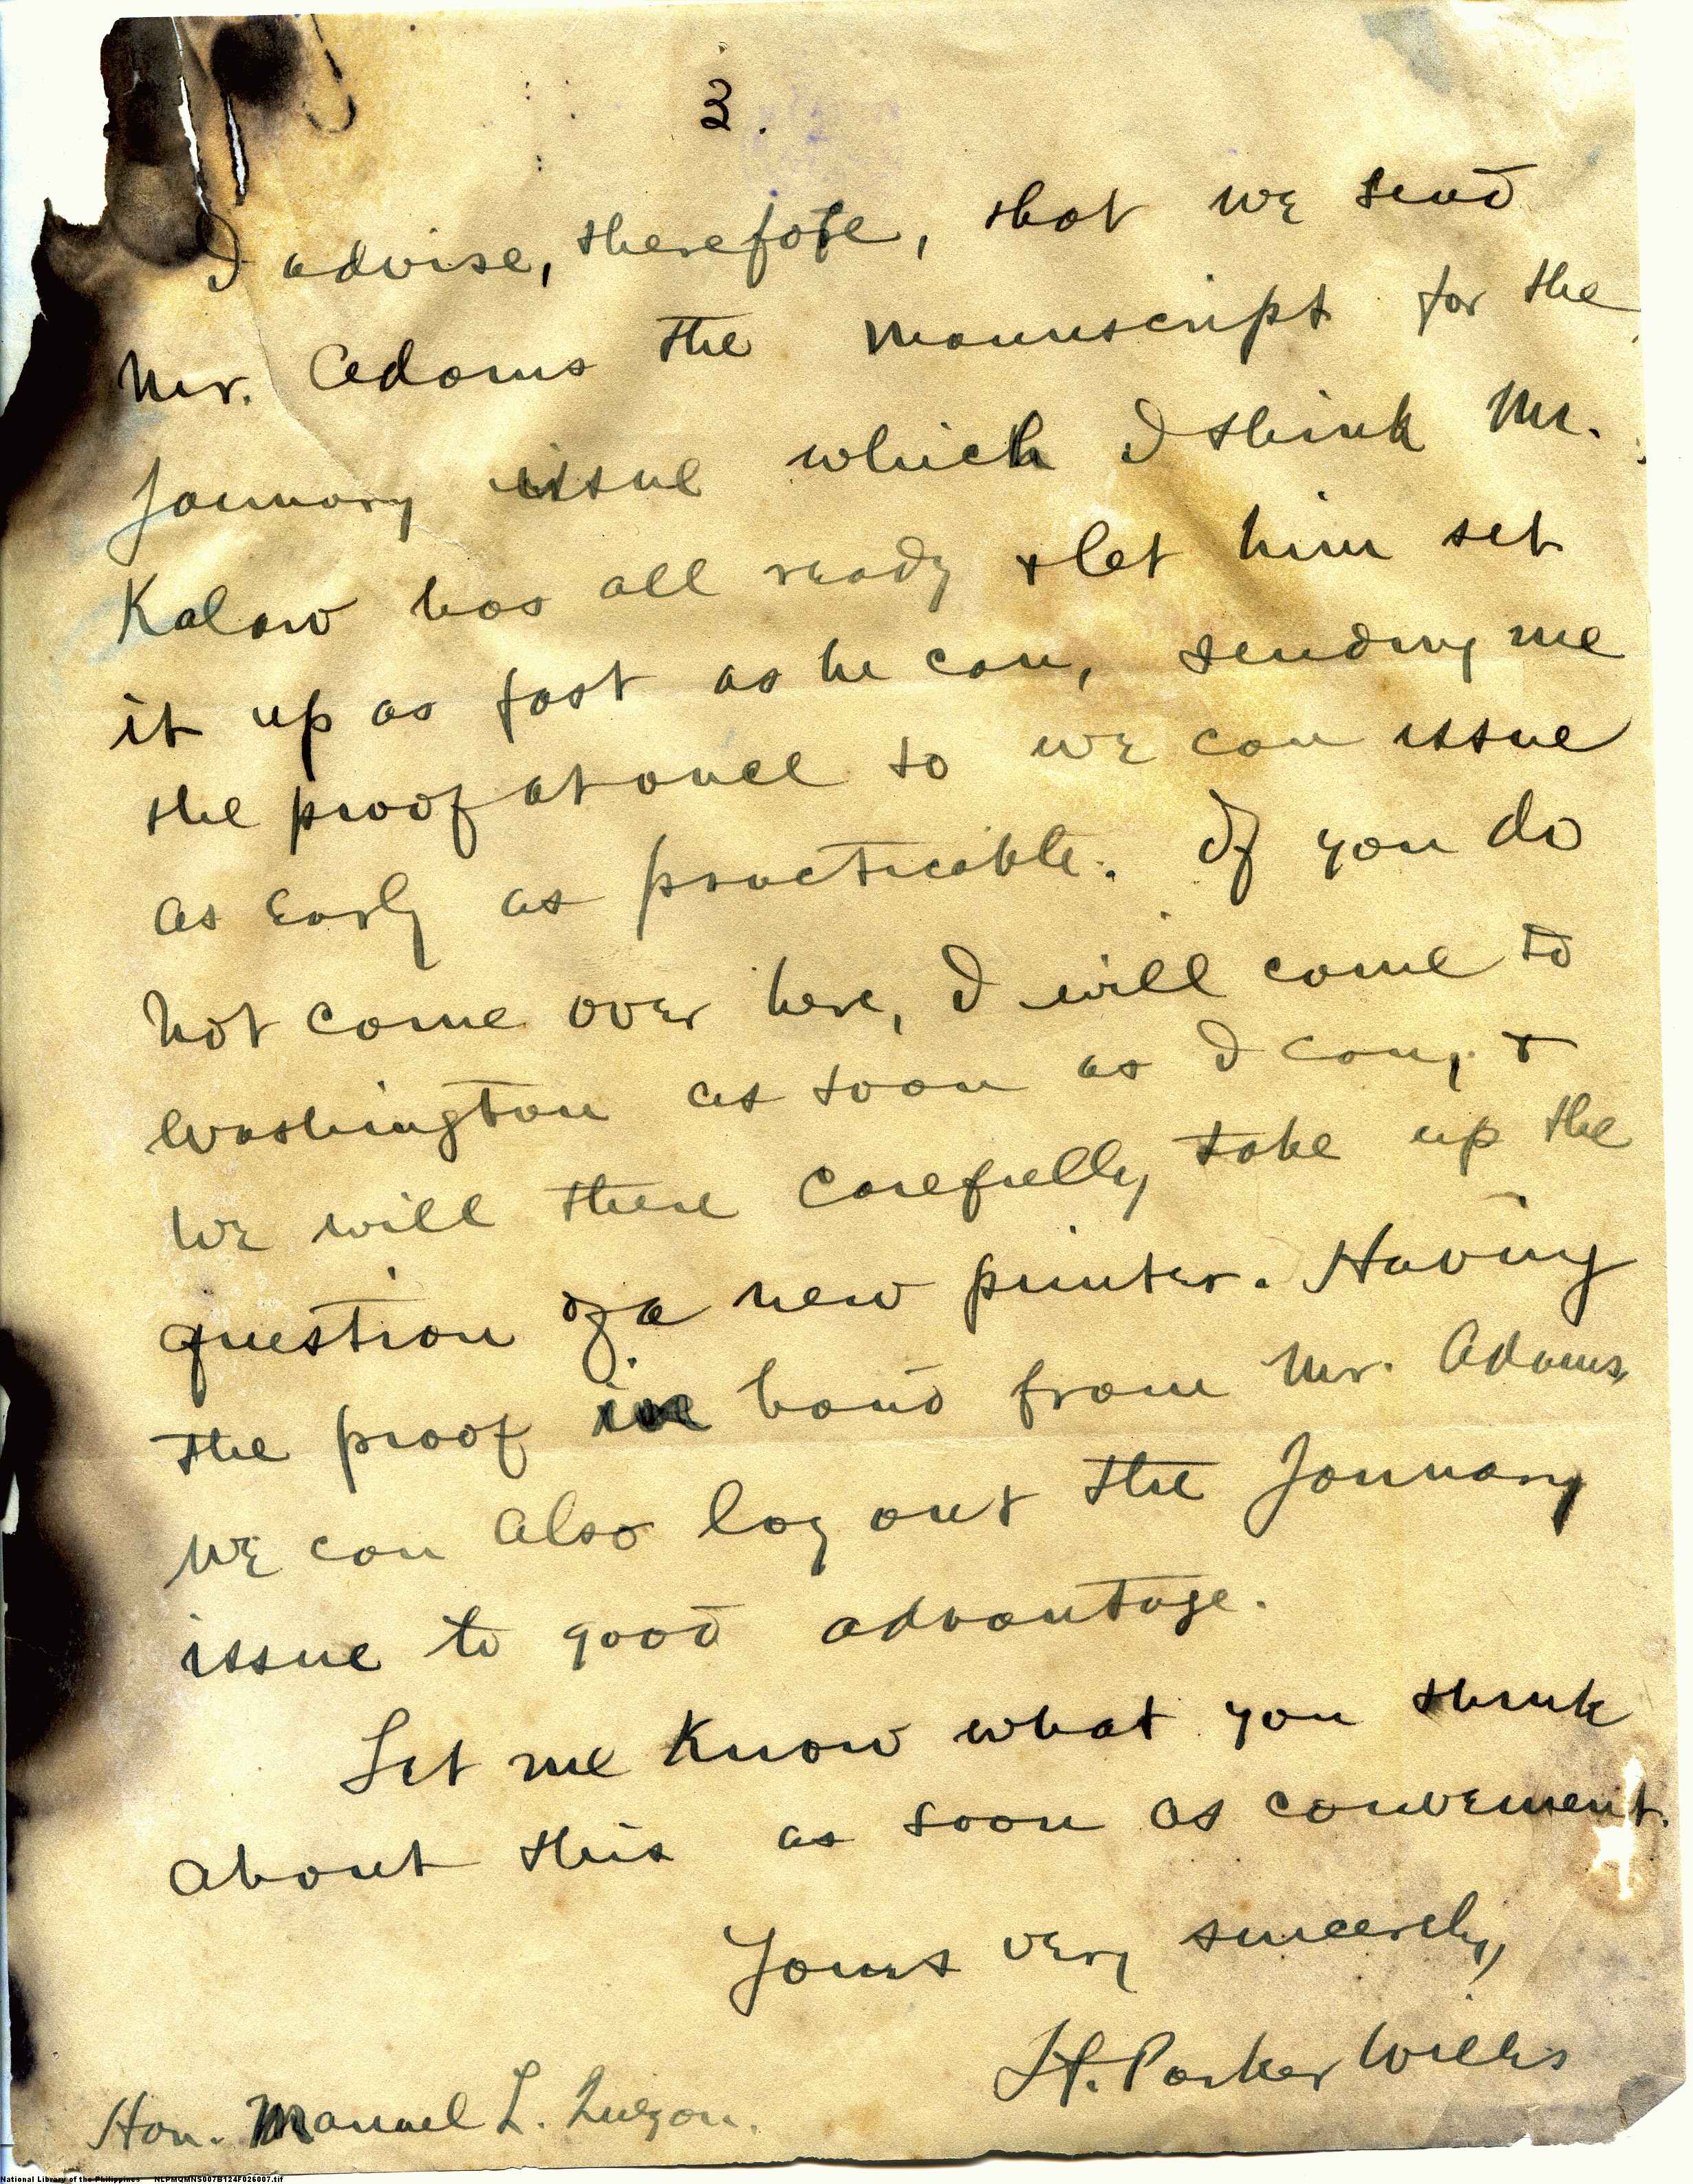 3.
I advise, therefore, that we send
Mr. Adams the manuscript for the
January issue which I think Mr.
Kalaw has all ready & let him set
it up as fast as he can, sending me
the proof at once so we can issue
as early as practicable. If you do
not come over here, I will come to
Washington as soon as I can, &
we will then carefully take up the
question of a new printer. Having
the proof in hand from Mr. Adams,
we can also lay out the January
issue to good advantage.
Let me know what you think
about this as soon as convenient.
Yours very sincerely,
H. Parker Willis
Hon. Manuel L. Quezon.
National Library of the Philippines NLPMQMNS007B124F026007.tif